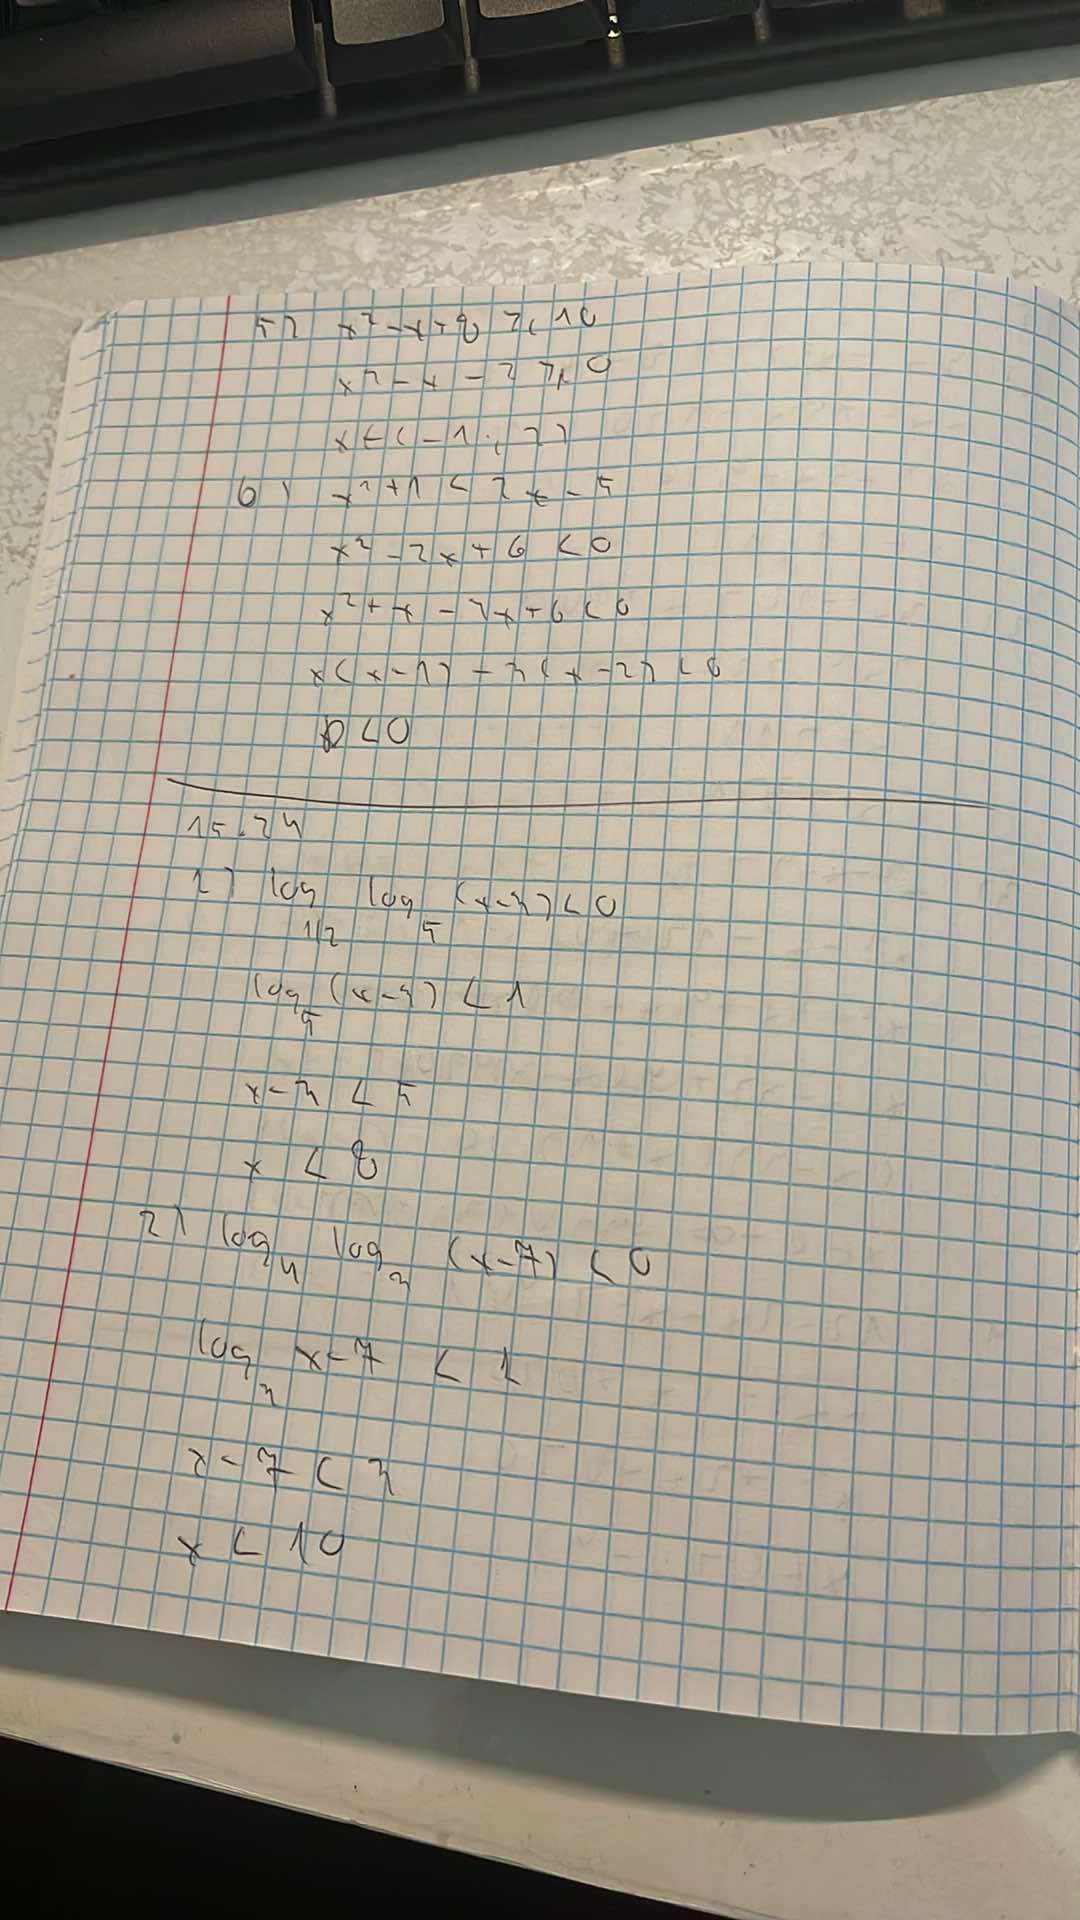 5) x² - x + 8 ≥ 10
x² - x - 2 ≥ 0
x ∈ (-1; 2)
6) x² + 1 < 2x - 5
x² - 2x + 6 < 0
x² + x - 3x + 6 < 0
x(x-1) - 3(x-2) < 0
D < 0
15.24
1) log_{1/2} log_5 (x-3) < 0
log_5 (x-3) < 1
x - 3 < 5
x < 8
2) log_4 log_3 (x-7) < 0
log_3 x-7 < 1
x - 7 < 3
x < 10